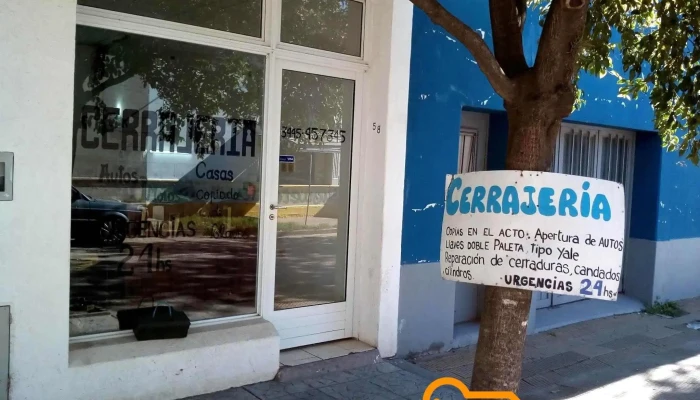 CERRAJERIA
3445-457345
58
Autos
Casas
Motos
URGENCIAS
24hs
CERRAJERIA
COPIAS EN EL ACTO. Apertura de AUTOS
LLAVES DOBLE PALETA, TIPO Yale
Reparación de cerraduras, candados
cilindros.
URGENCIAS 24hs